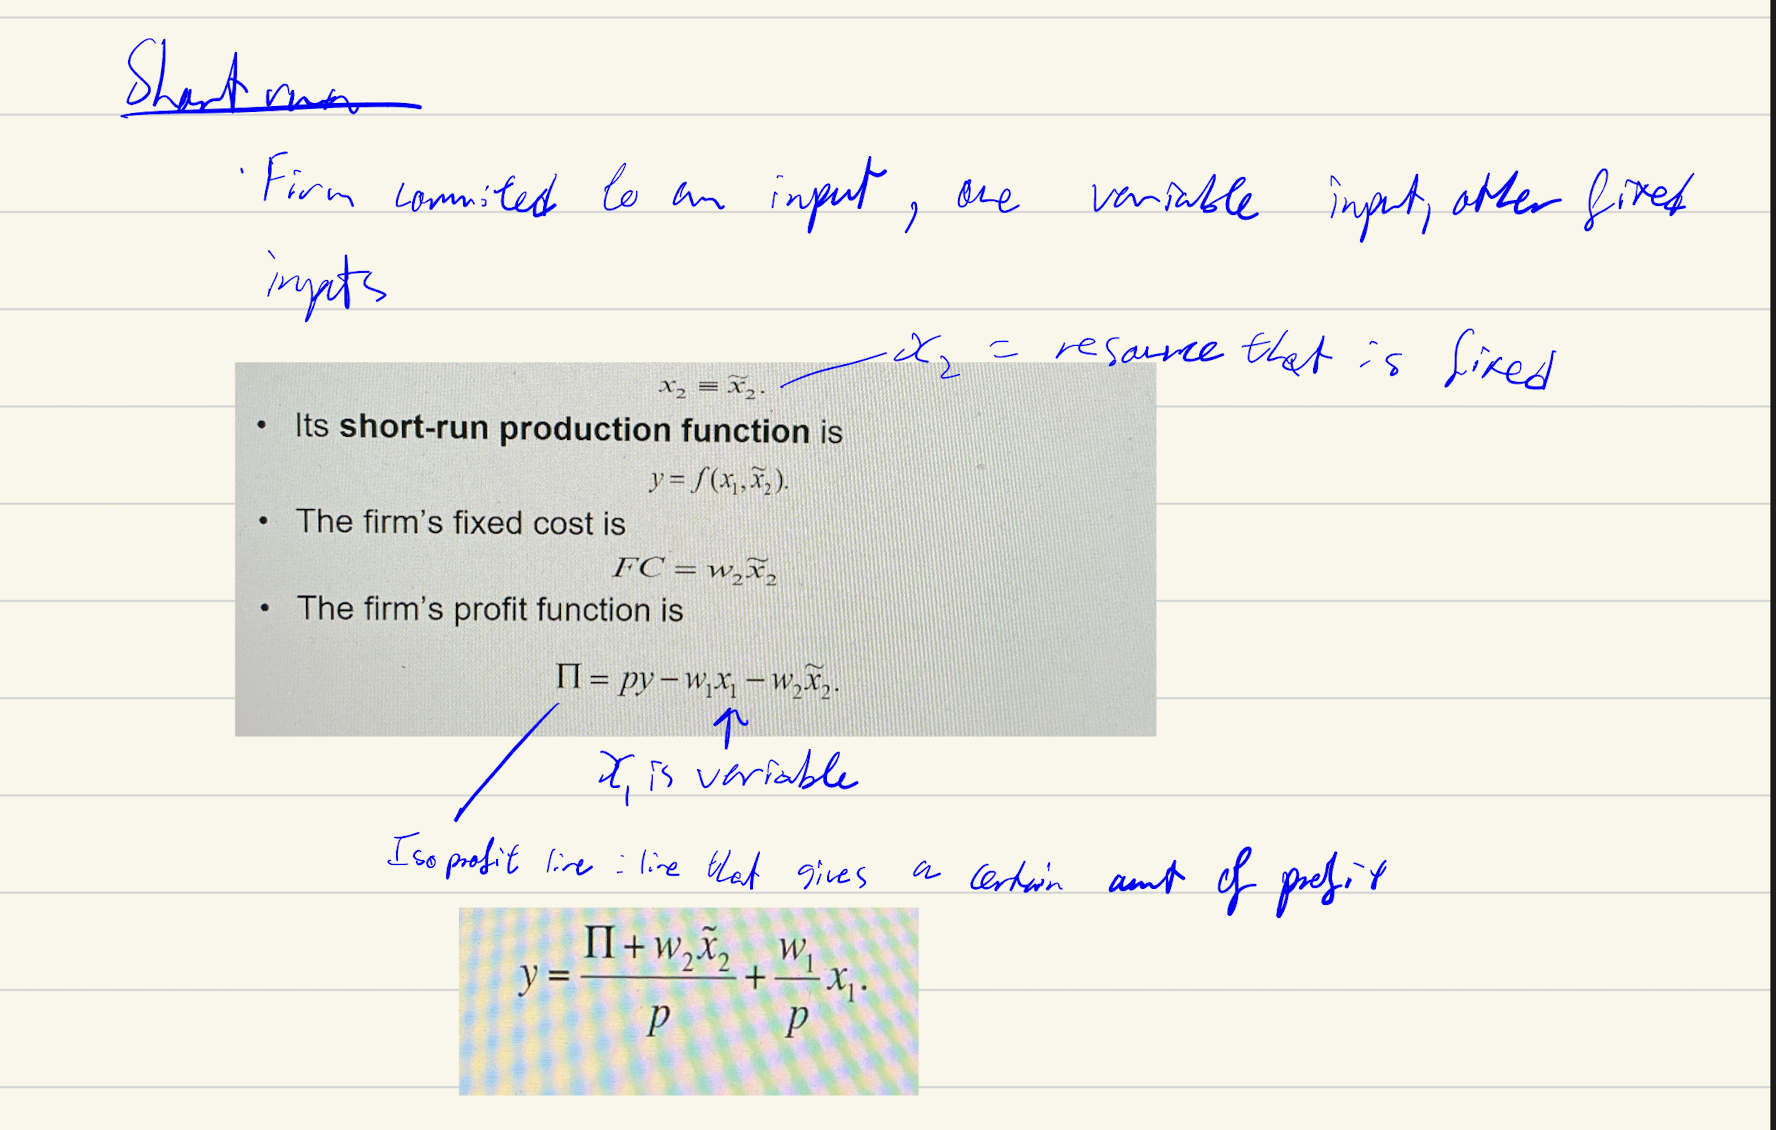 Short run
· Firm commited to an input, one variable input, other fixed
inputs
x₂ = resource that is fixed
x₂ ≡ x̃₂.
• Its short-run production function is
y = f(x₁, x̃₂).
• The firm's fixed cost is
FC = w₂x̃₂
• The firm's profit function is
Π = py − w₁x₁ − w₂x̃₂.
x₁ is variable
Iso profit line : line that gives a certain amt of profit
y = (Π + w₂x̃₂)/p + (w₁/p) x₁.